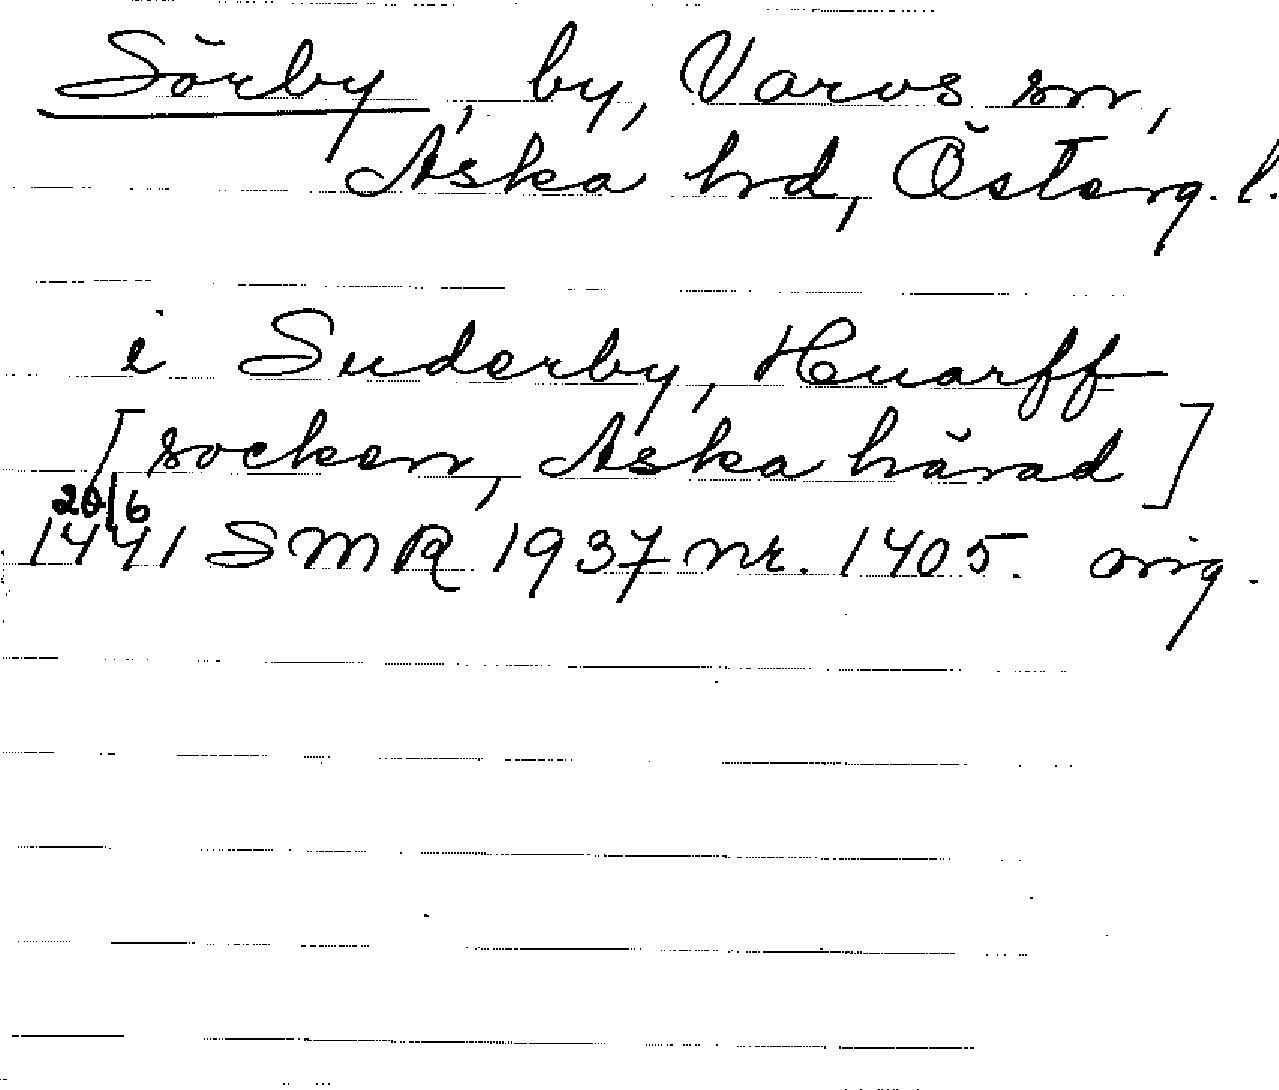 Sörby, by, Varvs sn,
Aska hd, Österg. l.
i Suderby, Huarff
[socken, Aska härad]
20/6
1441 SMR 1937 nr. 1405. orig.